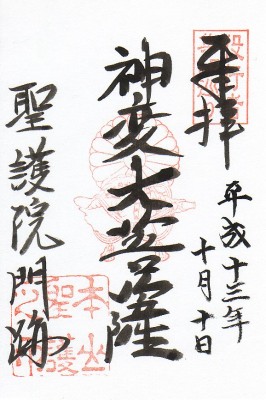 奉拝
平成十三年
十月十日
神変大菩薩
聖護院門跡
本山
聖護